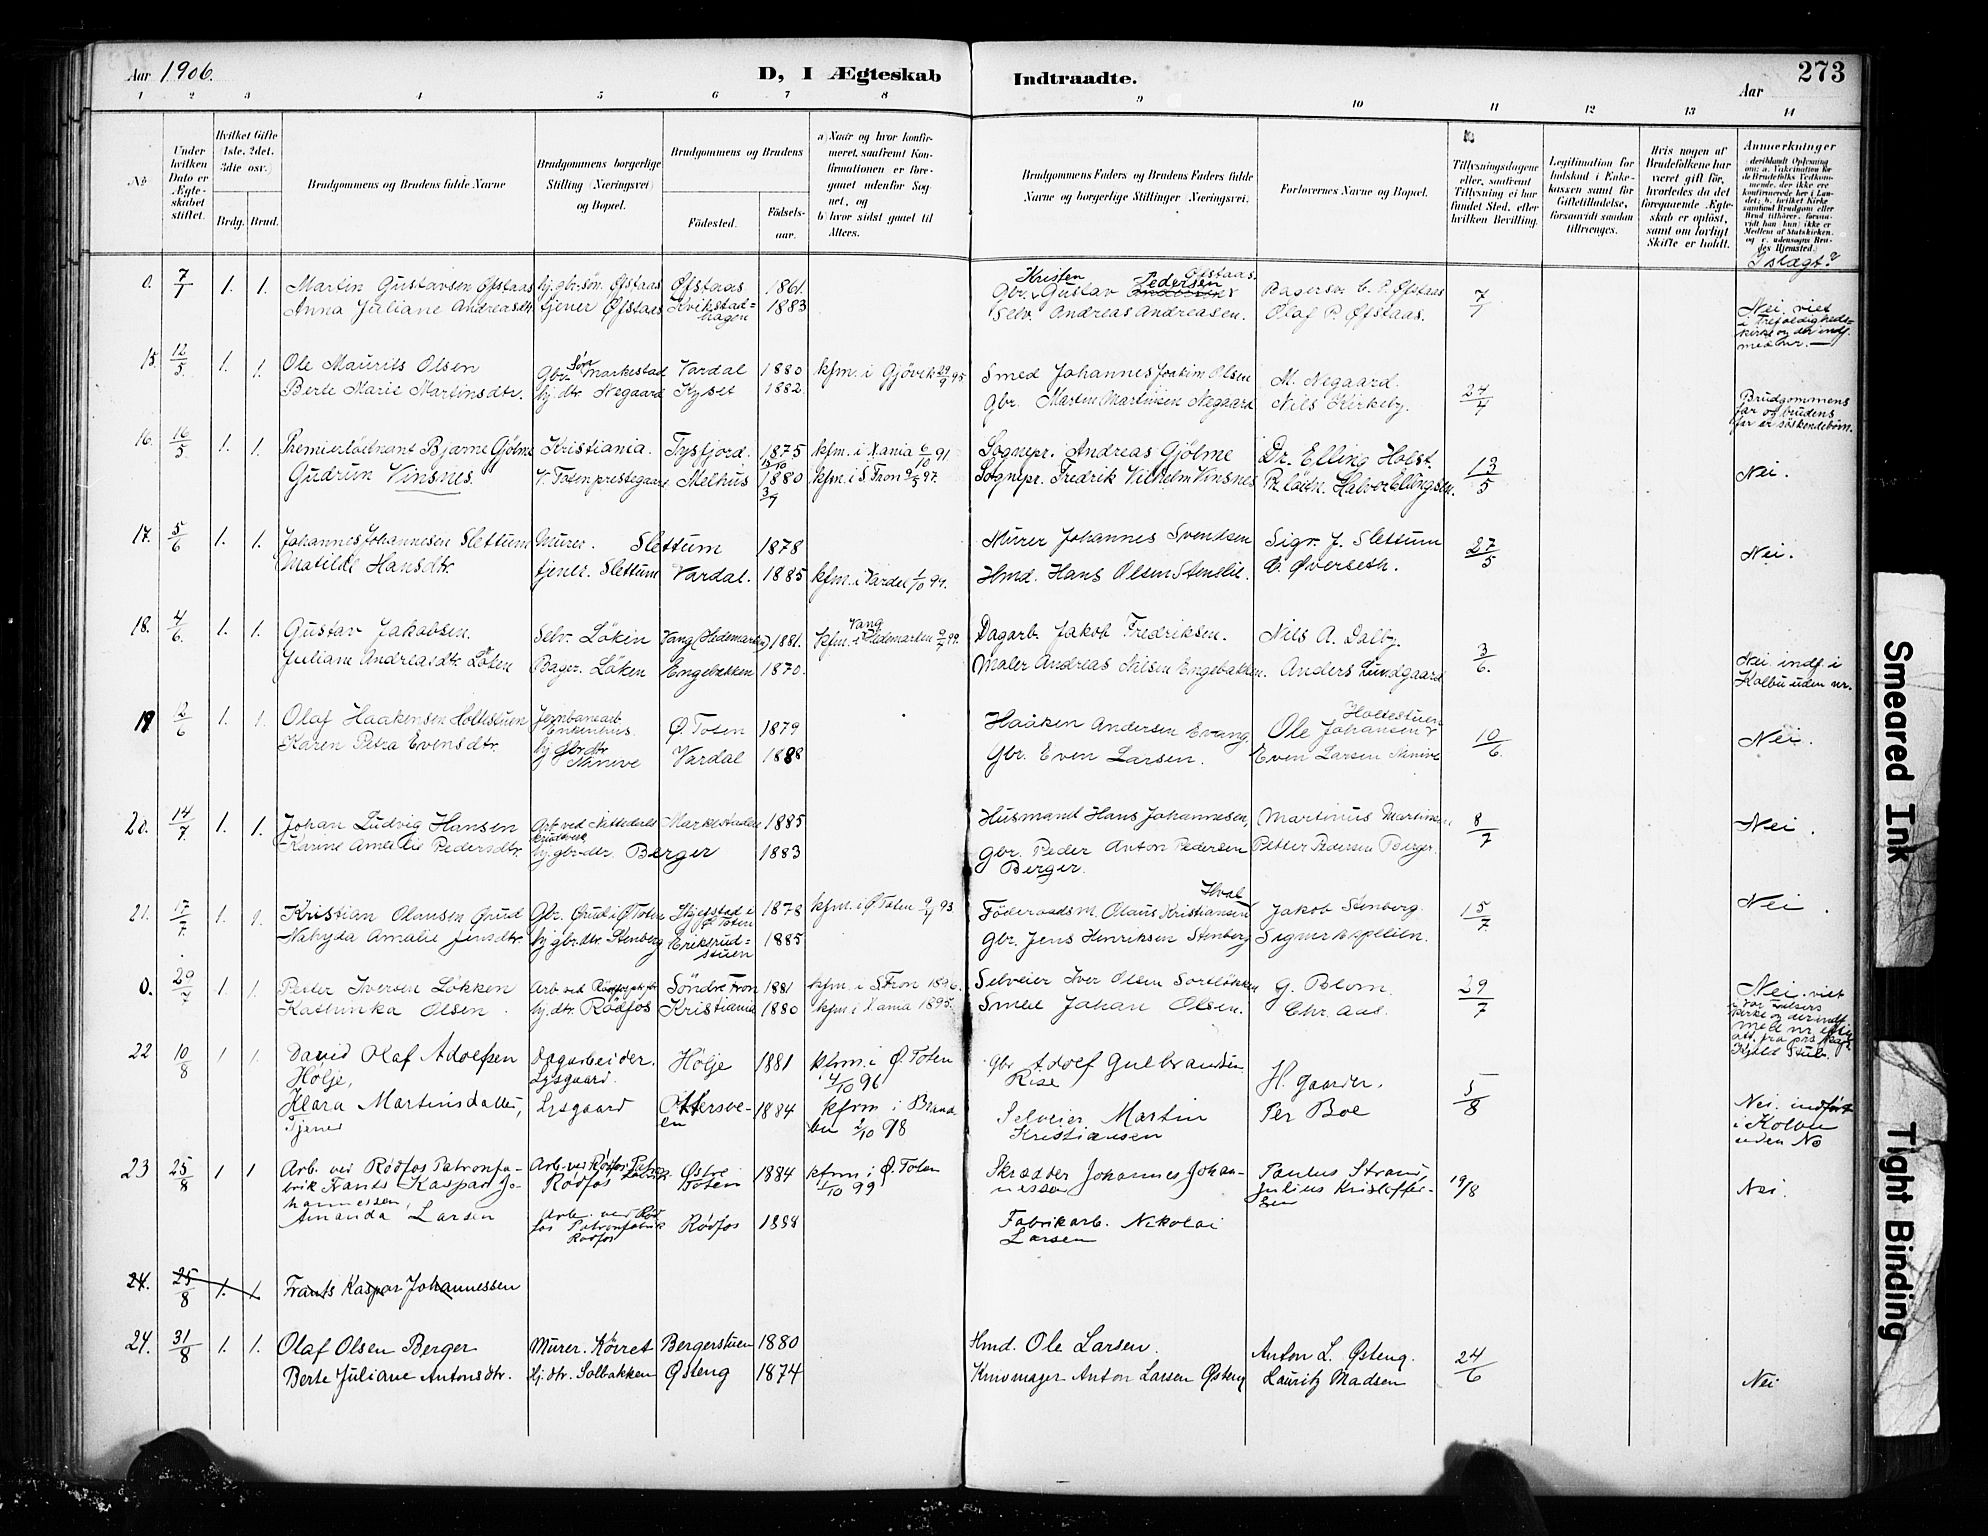 Aar 1906.
D, I Ægteskab Indtraadte.
Aar 273
1 2 3 4 5 6 7 8 9 10 11 12 13 14
No.
Under hvilken Dato er Ægteskabet stiftet.
Hvilket Gifte (1ste, 2det, 3die osv.)
Brdg. Brud.
Brudgommens og Brudens fulde Navne
Brudgommens borgerlige Stilling (Næringsvei) og Bopæl.
Brudgommens og Brudens
Fødested.
Fødselsaar.
a) Naar og hvor konfirmeret, saafremt Konfirmationen er foregaaet udenfor Sognet, og
b) hvor sidst gaaet til Alters.
Brudgommens Faders og Brudens Faders fulde Navne og borgerlige Stillinger (Næringsvei).
Forlovernes Navne og Bopæl.
Tillysningsdagene eller, saafremt Tillysning ei har fundet Sted, efter hvilken Bevilling.
Legitimation for Indskud i Enkekassen samt for Giftetilladelse, forsaavidt saadan tiltrænges.
Hvis nogen af Brudefolkene har været gift før, hvorledes da det foregaaende Ægteskab er opløst, samt om lovligt Skifte er holdt.
Anmerkninger
I slægt?
0. 7/1 1. 1. Martin Gustavsen Øfstaas hj. gbr. søn. Øfstaas Øfstaas 1861. Gbr. Kristen Gustav Pedersen Øfstaas. Øfstaas 7/1
Anna Juliane Andreasdtr. tjener Øfstaas Kvikstadhagen 1883 Selv. Andreas Andreasen. Olaf P. Øfstaas. Nei. viet i Trefoldighedskirke og der indf. med nr. —
15. 12/5 1. 1. Ole Maurits Olsen Gbr. søn Markestad Vardal 1880 kfm. i Gjøvik 29/9 95 Smed Johannes Joakim Olsen M. Negaard. 24/4
Berte Marie Martinsdtr. hj. dtr. Negaard Kyset 1882. Gbr. Martin Martinsen Negaard Nils Kirkeby. Brudgommens far og brudens far er søskendebørn.
16. 16/5 1. 1. Premierløitnant Bjarne Gjølme Kristiania. Tysfjord. 1875 kfm. i Xania 6/10 91 Sognepr. Andreas Gjølme Dr. Elling Holst. 13/5 Nei.
Gudrun Vinsnes. V. Toten prestegaard Melhus 1880 kfm. i S. Fron 9/5 97. Sognepr. Fredrik Vilhelm Vinsnes Pr. løitn. Halvor Ellingsen.
17. 5/6 1. 1. Johannes Johannesen Slettum Murer. Slettum 1878 Murer Johannes Svendsen Sigv. J. Slettum 27/5 Nei.
Matilde Hansdtr. tjener. Slettum Vardal. 1885 kfm. i Vardal 1/10 99. Hmd. Hans Olsen Stenslie. C. Øverseth.
18. 4/6. 1. 1. Gustav Jakobsen. Selv. Løken Vang (Hedemarken) 1881. kfm. i Vang Hedemarken 99. Dagarb. Jakob Fredriksen. Nils A. Dalby. 3/6.
Juliane Andreasdtr. Løken Bager. Løken Engebakken 1870. Maler Andreas Nilsen Engebakken. Anders Lundgaard Nei. indf. i Kolbu uden nr.
19 12/6 1. 1. Olaf Haakensen Holtestuen Jernbanearb. Enkenhus. Ø. Toten 1879 Haaken Andersen Evang Ole Johansen Holtestuen 10/6. Nei.
Karen Petra Evensdtr. hj. gbr. dtr. Vardal 1888 Gbr. Even Larsen. Even Larsen
20. 14/7. 1. 1. Johan Ludvig Hansen Arb. ved Nittedals krudtverk Markestuen 1885 Husmand Hans Johannesen, Martinus Martinsen. 8/7 Nei.
Karine Amalie Pedersdtr. hj. gbr. dtr. Berger 1883 Gbr. Peder Anton Pedersen Berger. Petter Pedersen Berger.
21. 17/7. 1. 1. Kristian Olausen Grud Gbr. Grud i Ø. Toten Skjefstad i Ø. Toten 1878 kfm. i Ø. Toten 93. Føderaadsm. Olaus Kristiansen Hval Jakob Stenberg. 15/7 Nei.
Nahyda Amalie Jensdtr. hj. gbr. dtr. Stenberg Eriksrudstuen 1885 Gbr. Jens Henriksen Stenberg Signer Espelien.
0. 29/7 1. 1. Peter Iversen Løkken Arb. ved Rødfos Søndre Fron 1881 kfm. i S. Fron 1896. Selveier Iver Olsen Sortløkken G. Blom. 29/7
Kathinka Olsen. hj. dtr. Rødfos Kristiania 1880 kfm. i Xania 1895. Smed Johan Olsen. Chr. Aas. Nei. viet i Vor Frelsers kirke og der indf. med nr. efter att. fra Kjeld Stub.
22 10/8 1 1. David Olaf Adolfsen Hølje, Dagarbeider. Lysgaard. Hølje 1881 kfrm. i Ø. Toten 4/10 96 Gbr Adolf Gulbrandsen Rise H. Gaarder. 5/8
Klara Martinsdatter, Tjener Lysgaard Ottersveen 1884 kfrm i Brandbu 2/10 98 Selveier Martin Kristiansen Per Boe Nei. indført i Kolbu uden No
23 25/8 1 1 Arb. ved Rødfos Patronfabrik Frants Kaspar Johannessen, Arb. ved Rødfos Patronfabrik Rødfos Østre Toten 1884 kfrm. i Ø. Toten 1/10 99 Skrædder Johannes Johannessen Paulus Strand, Julius Kristoffersen 19/8 Nei.
Amanda Larsen Arb. ved Rødfos Patronfabrik Rødfos Rødfos 1888 Fabrikarb. Nikolai Larsen
24. 25/8 1. 1. Frants Kaspar Johannessen
24. 31/8 1. 1. Olaf Olsen Berger Murer. Kørret Bergerstuen 1880 Hmd. Ole Larsen. Anton L. Østeng. 24/6
Berte Juliane Antonsdtr. Hj. dtr. Solbakken Østeng 1874 Anton Larsen Østeng Lauritz Madsen Nei
Smeared Ink
Tight Binding